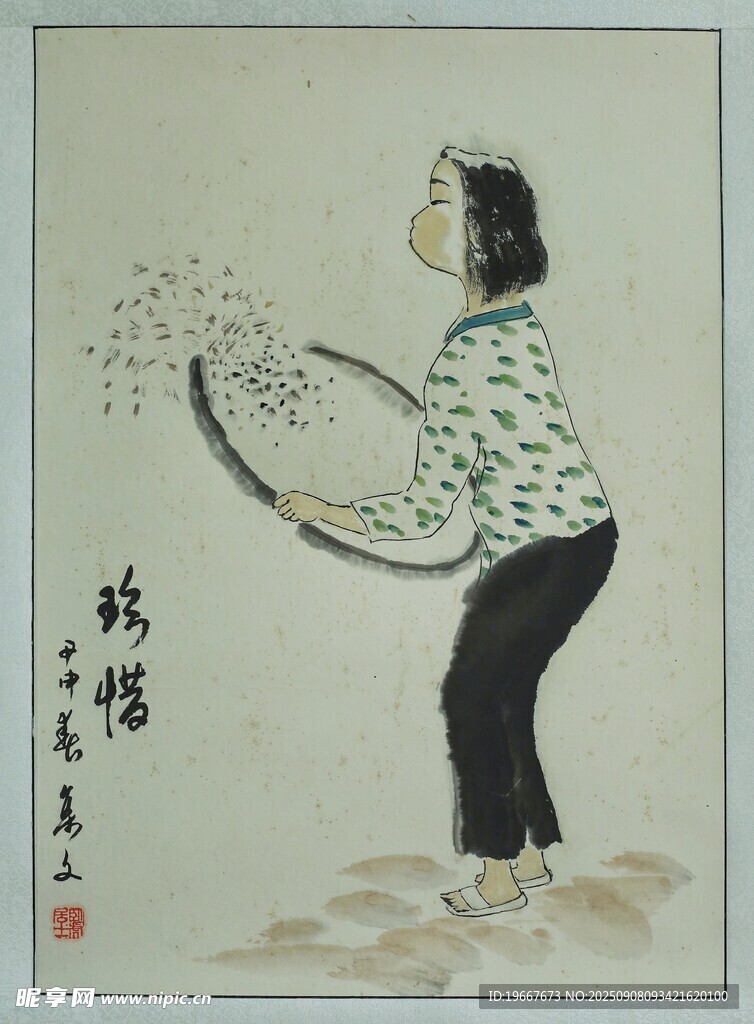 珍惜
甲申春 集文
昵享网 www.nipic.cn
ID:19667673 NO:20250908093421620100